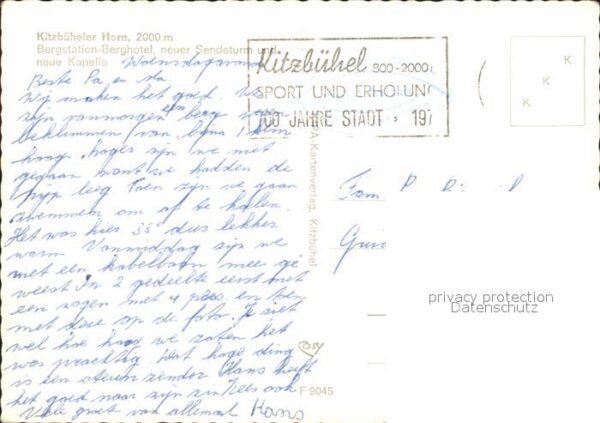 Kitzbüheler Horn, 2000 m
Bergstation-Berghotel, neuer Sendeturm und
neue Kapelle
Woensdagavond
Beste Pa en
Wij maken het goed. We
zijn vanmorgen een berg
beklommen van bijna 1 km
hoog. hoger zijn we niet
gegaan want we hadden de
pijp leeg Toen zijn we gaan
zwemmen om af te koelen.
Het was hier 33° dus lekker
warm Vanmiddag zijn we
met een kabelbaan mee ge
weest In 2 gedeelte eerst met
een wagen met 4 pers en toen
met deze op de foto. Je ziet
wel hoe hoog we zaten het
was prachtig Dat hoge ding
is een steren zender Hans heeft
het goed naar zijn zin Kees ook
Vele groet van allemaal Hans
Kitzbühel 800-2000
SPORT UND ERHOLUNG
700 JAHRE STADT 197
K
K
K
A-Kartenverlag, Kitzbühel
Fam P D
privacy protection
Datenschutz
F 9045